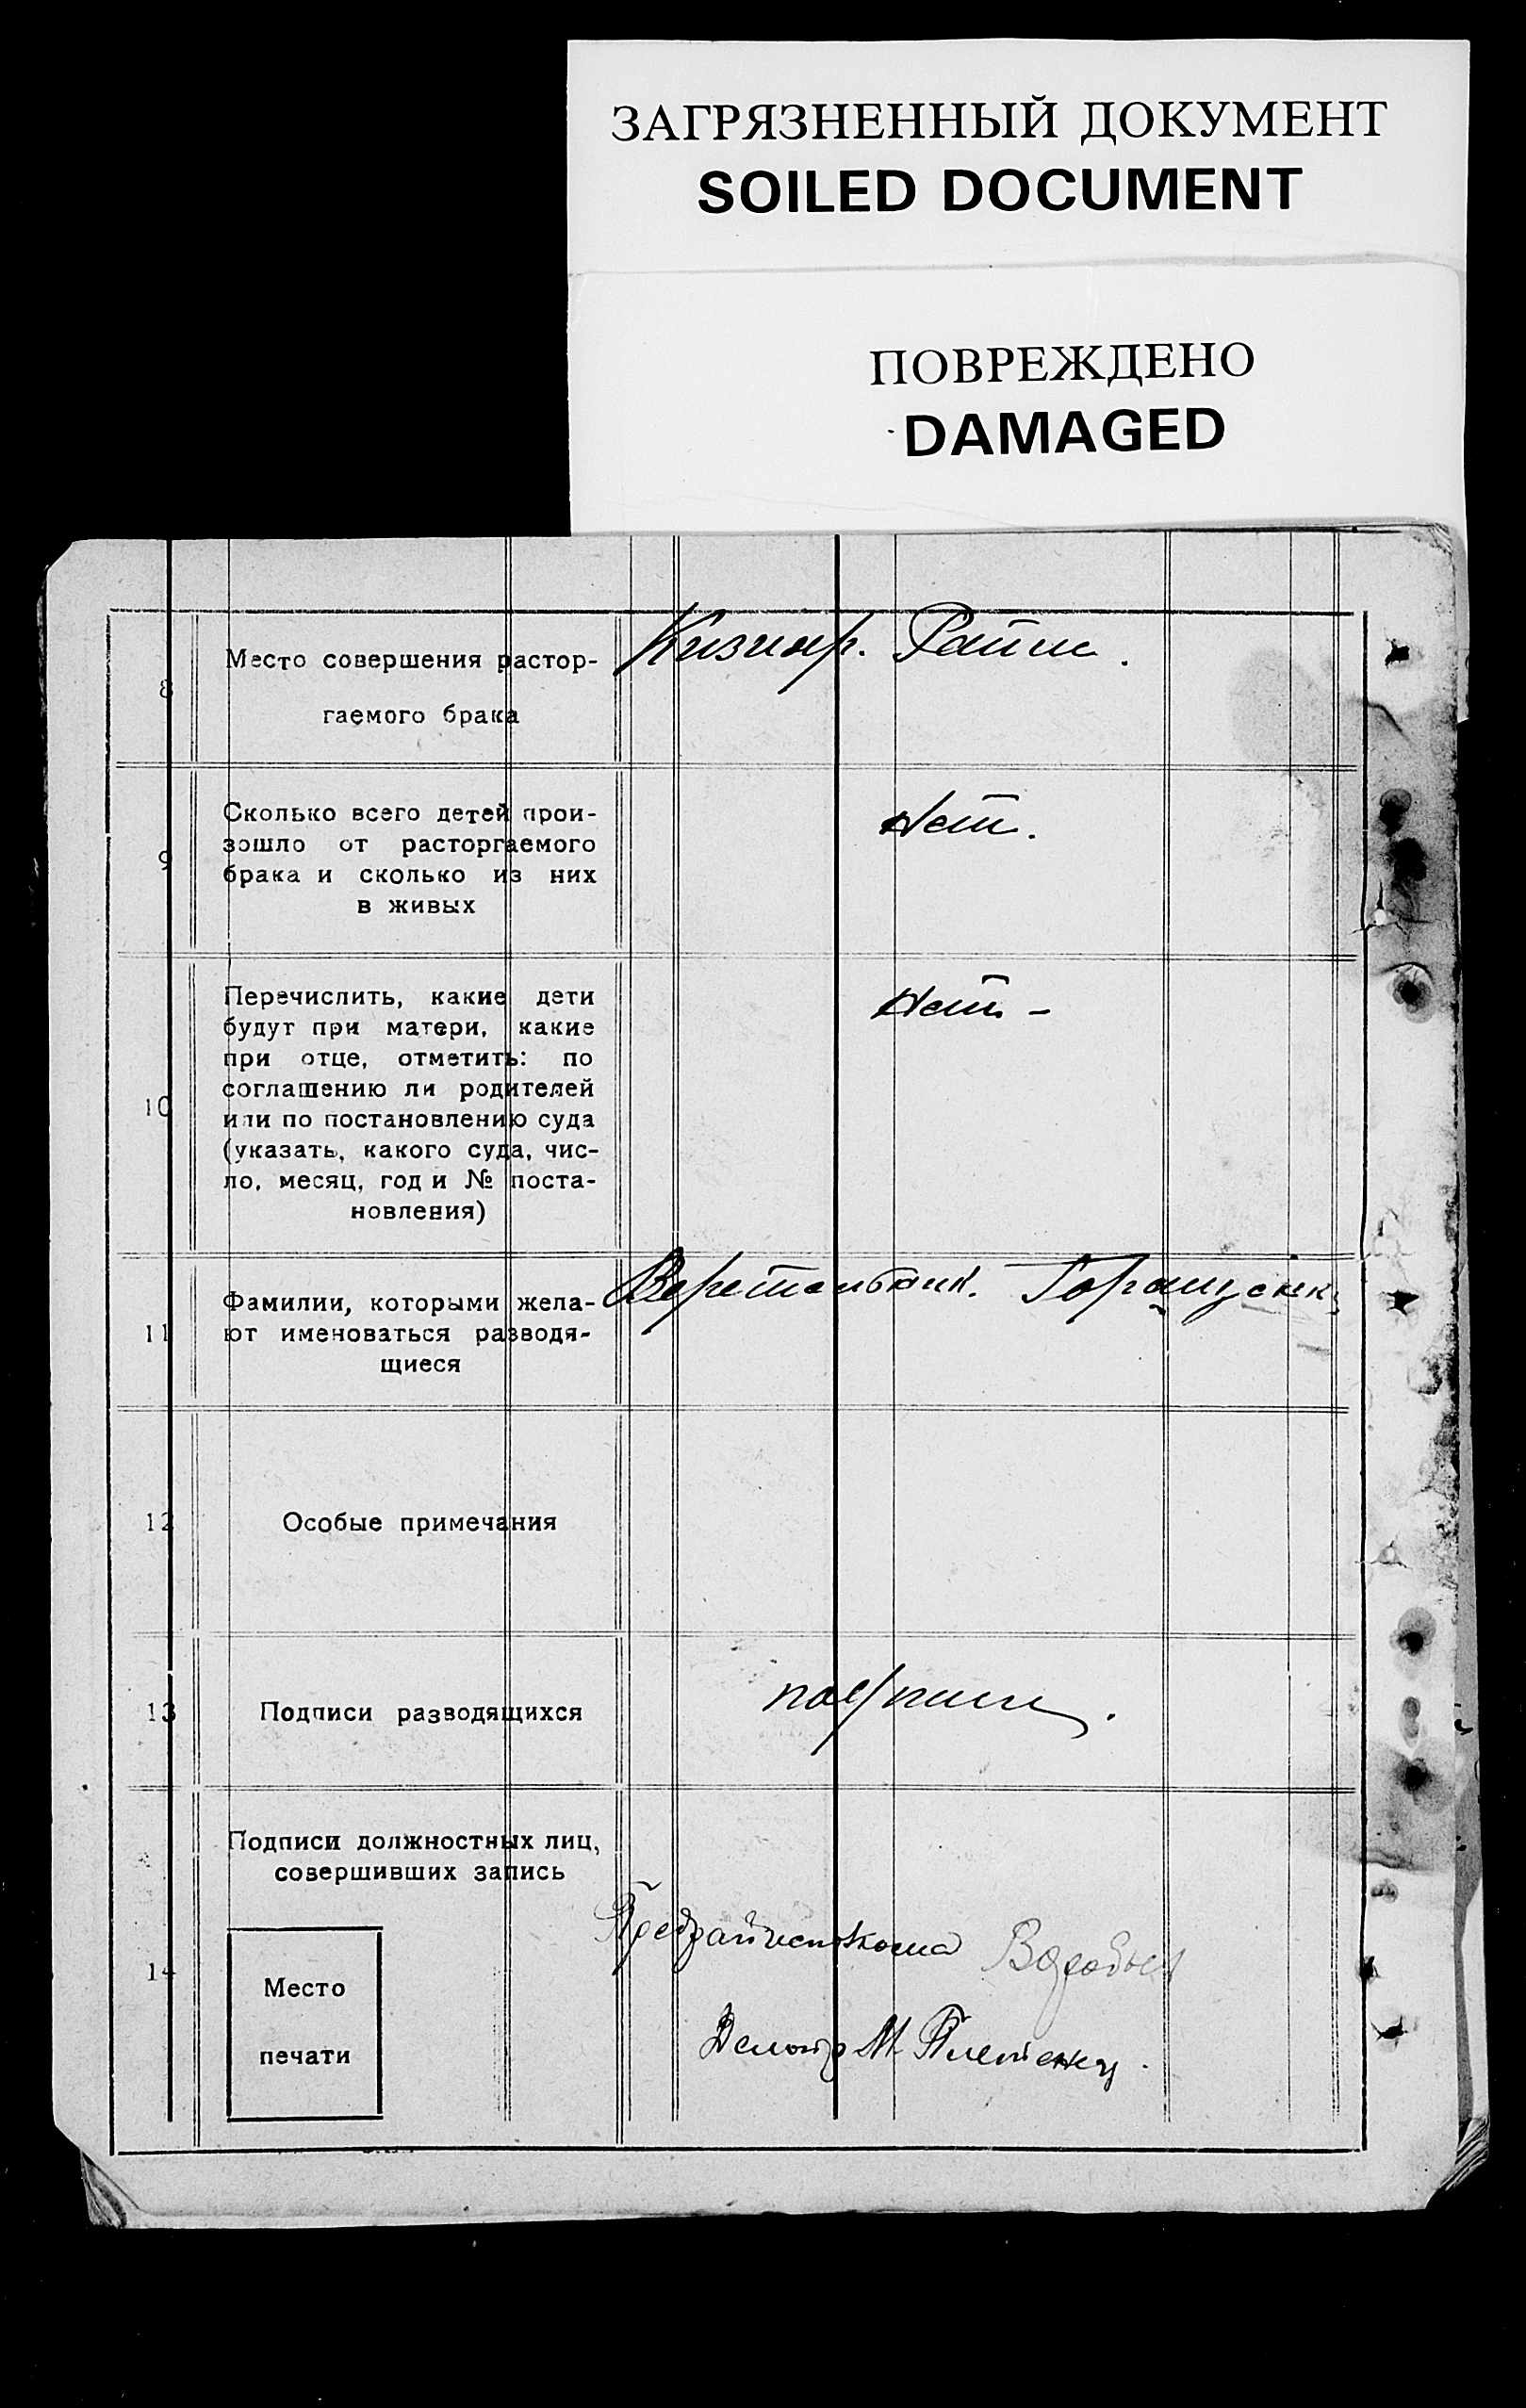 ЗАГРЯЗНЕННЫЙ ДОКУМЕНТ
SOILED DOCUMENT
ПОВРЕЖДЕНО
DAMAGED
8
Место совершения растор-
гаемого брака
9
Сколько всего детей прои-
зошло от расторгаемого
брака и сколько из них
в живых
Нет.
10
Перечислить, какие дети
будут при матери, какие
при отце, отметить: по
соглашению ли родителей
или по постановлению суда
(указать, какого суда, чис-
ло, месяц, год и № поста-
новления)
Нет -
11
Фамилии, которыми жела-
ют именоваться разводя-
щиеся
12
Особые примечания
13
Подписи разводящихся
подписи.
14
Подписи должностных лиц,
совершивших запись
Место
печати
Предрайисполкома
Делопр М.